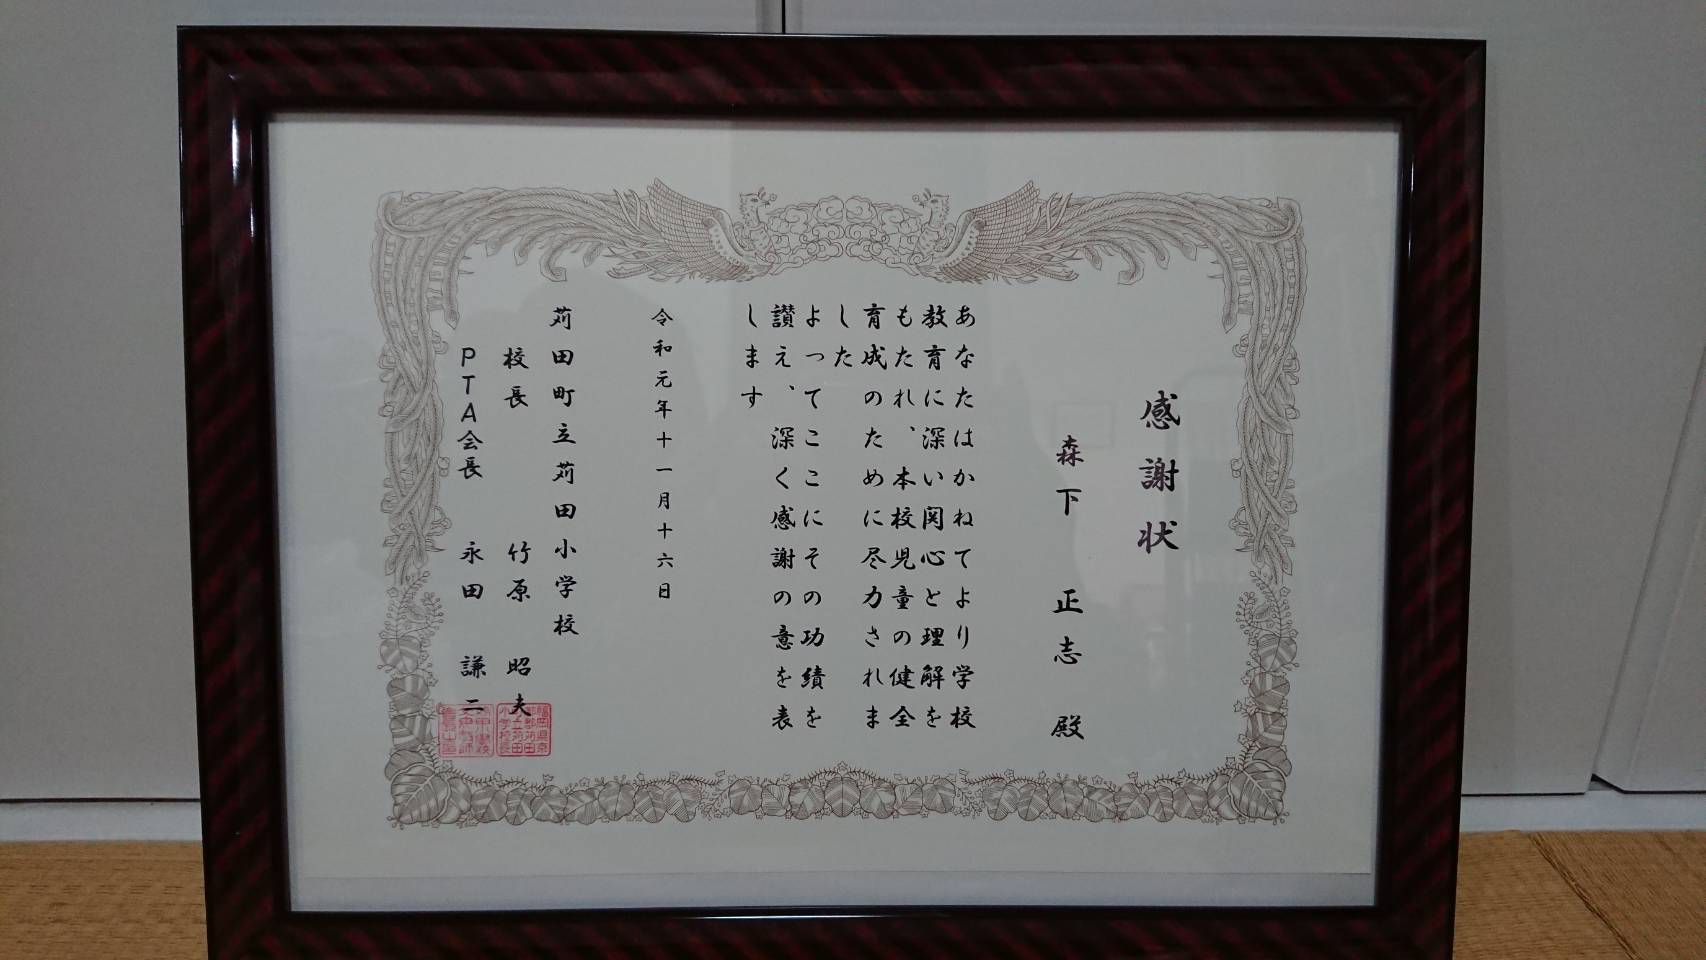 感謝状
森下 正志 殿
あなたはかねてより学校
教育に深い関心と理解を
もたれ、本校児童の健全
育成のために尽力されま
した
よってここにその功績を
讃え、深く感謝の意を表
します
令和元年十一月十六日
苅田町立苅田小学校
校長 竹原 昭夫
PTA会長 永田 謙二